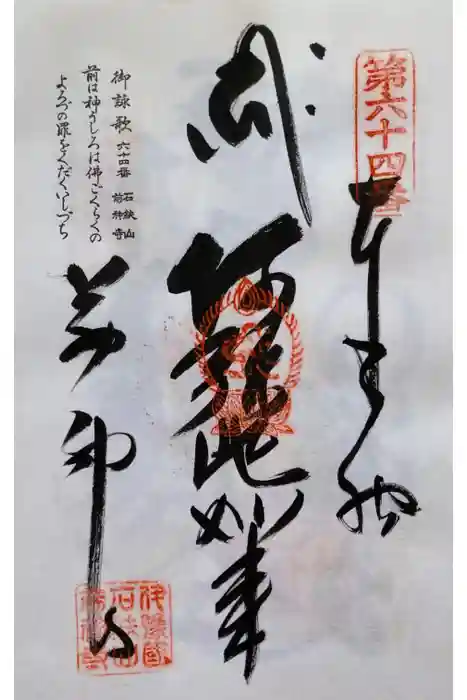 第六十四番
奉納
阿弥陀如来
御詠歌 六十四番 石鉄山 前神寺
前は神うしろは佛ごくらくの
よろづの罪をくだくいしづち
前神寺